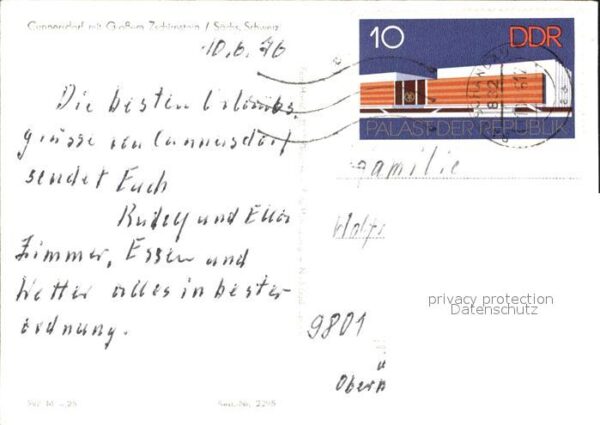 Cunnersdorf mit Großem Zschirnstein / Sächs. Schweiz
10.6.76
Die besten Urlaubs
grüsse von Cunnersdorf
sendet Euch
Rudolf und Ella
Zimmer, Essen und
Wetter alles in bester
ordnung.
10 DDR
PALAST DER REPUBLIK
Familie
9801
Obern
privacy protection
Datenschutz